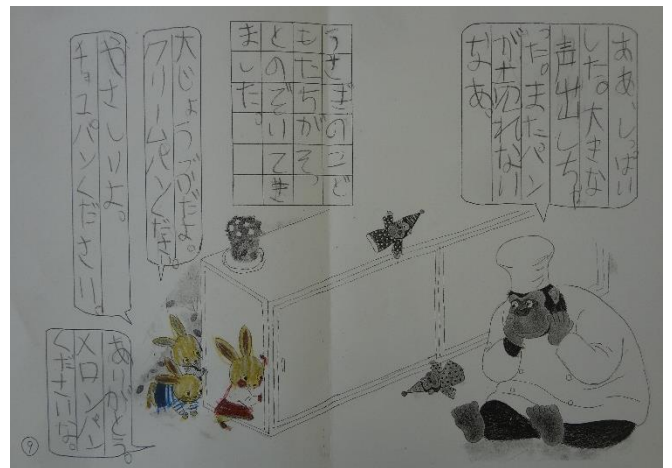 ああ、しっぱい
した。大きな
声出しちゃ
た。またパン
が売れない
なあ、
うさぎのこど
もたちがそっ
とのぞいてき
ました。
大じょうぶだよ。
クリームパンください。
やさしいよ。
チョコパンください。
ありがとう。
メロンパン
ください。
9